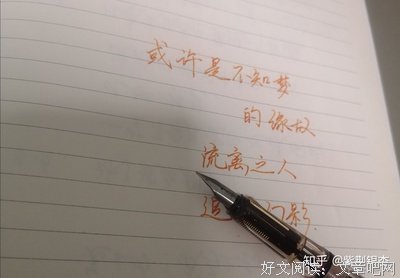 或许是不知梦
的缘故
流离之人
追幻影
知乎 @紫荆银杏
好文阅读：文章吧网